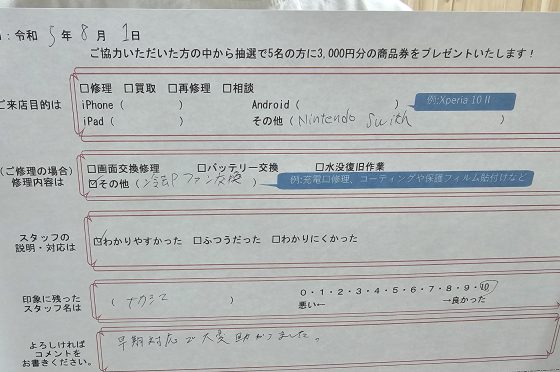 : 令和 5 年 8 月 1 日
ご協力いただいた方の中から抽選で5名の方に3,000円分の商品券をプレゼントいたします！
ご来店目的は
□修理 □買取 □再修理 □相談
iPhone（ ） Android（ ） 例:Xperia 10 II
iPad（ ） その他（Nintendo Swith ）
（ご修理の場合）
修理内容は
□画面交換修理 □バッテリー交換 □水没復旧作業
☑その他（冷却ファン交換 ） 例:充電口修理、コーティングや保護フィルム貼付けなど
スタッフの
説明・対応は
☑わかりやすかった □ふつうだった □わかりにくかった
印象に残った
スタッフ名は
（ ナカシマ ）
0・1・2・3・4・5・6・7・8・9・10
悪い← →良かった
よろしければ
コメントを
お書きください。
早期対応で大変助かりました。